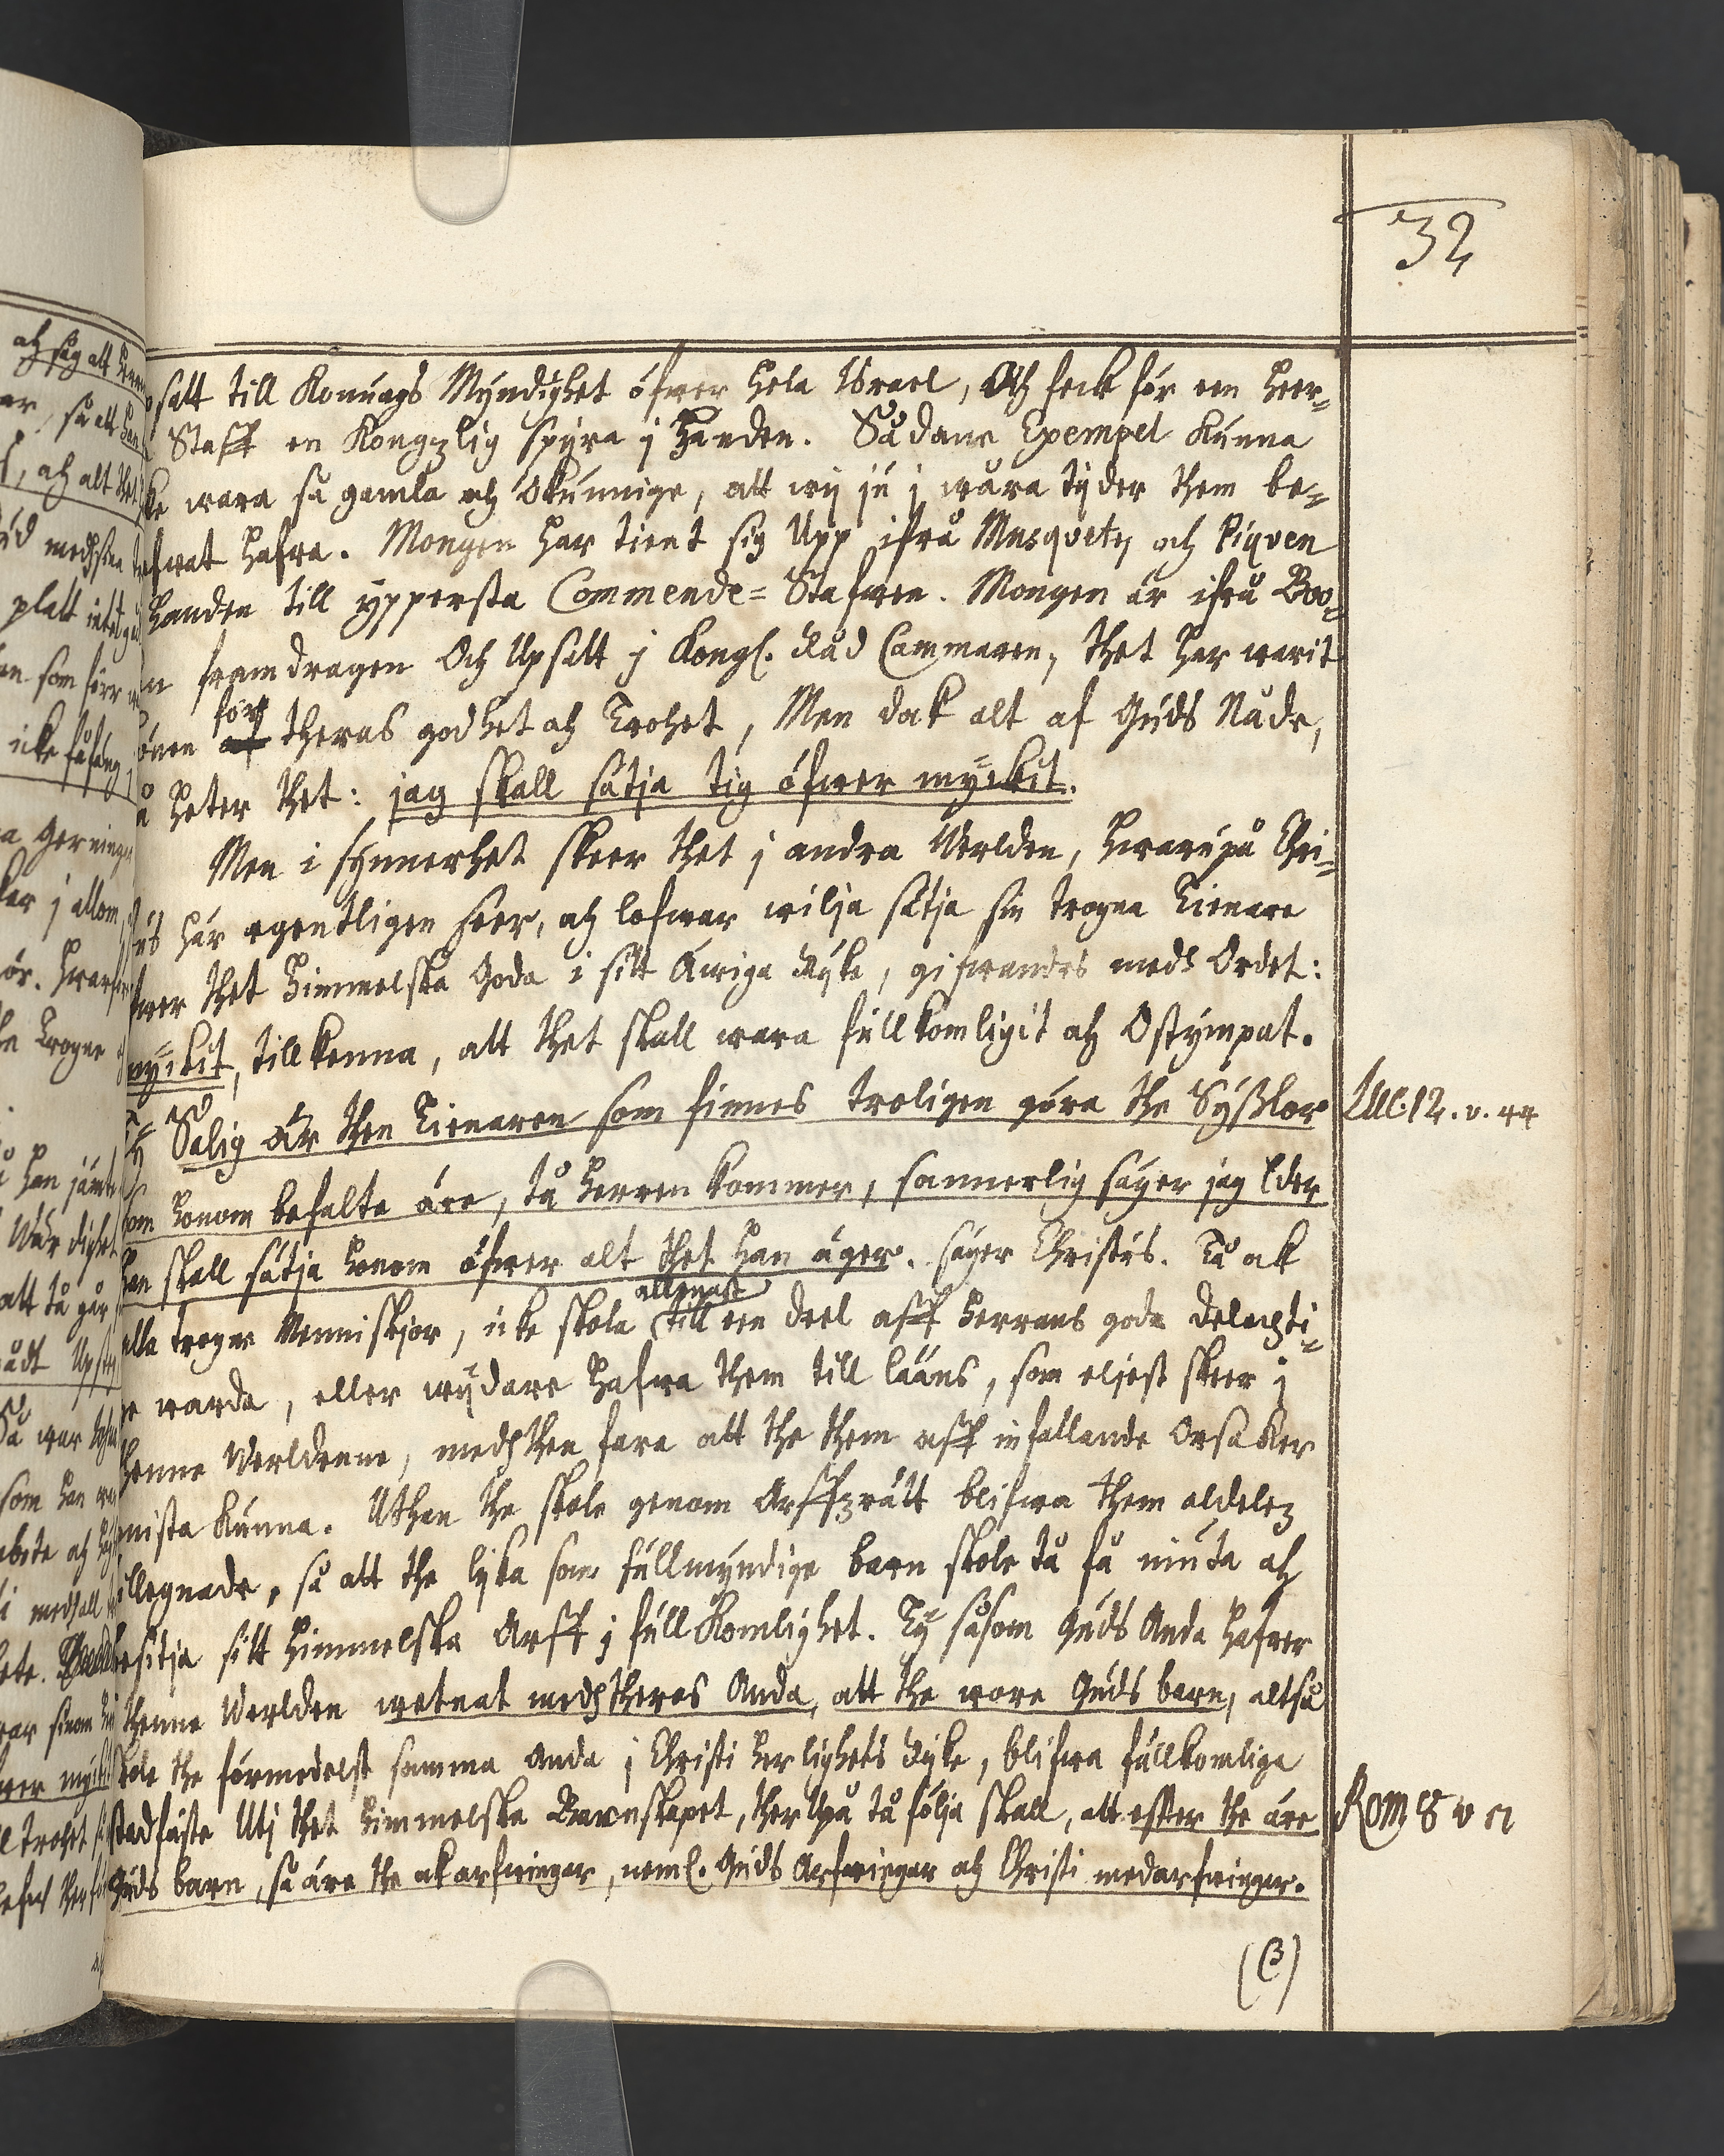 32
satt till Konungs Myndighet öfwer hela Israel, Och feck för een Heer-
Staff en Kongzlig spijra j Handen. Sådane Exempel kunna
ke wara så gamla och Okunnige, att wij ju j wåra tijder them be-
fwat hafwa. Mongen har tient sig Upp ifrå Musquetn och Piqven
Handen till yppersta Commende= Stafwen. Mongen är ifrå Boo-
n framdragen Och Upsatt j Kongl. Råd Cammaren, Thet har warit
önen af för theras godhet och Trohet, Men dock alt af Guds Nåde,
å heter thet: jag skall sätja tig öfwer myckit.
Men i synnerhet skeer thet j andra Werlden, hwaruppå Chri-
us här egentligen seer, och lofwar wilja sätja sin trogna Tienare
wer thet Himmelska Goda i sitt Äwiga Rijke, gifwandes medh Ordet:
myckit, tillkenna, att thet skall wara fullkomligit och Ostympat.
Ty Salig är then Tienaren som finnes troligen göra the Sysslor
Luc. 12. v. 44
som honom befalte äre, tå Herren kommer, sannerlig säger jag Eder
han skall sätja honom öfwer alt thet han äger. säger Christus. Tå ock
alla trogne Menniskjor, icke skola allenast till een deel aff Herrans goda delachti-
ge warda, eller wijdare hafwa them till lääns, som eljest skeer j
thenne Werldenne, medh then fara att the them aff infallande Orsaker
mista kunna. Uthan the skole genom Arffzrätt blifwa them aldelez
illegnade, så att the lijka som fullmyndige barn skole tå få niuta och
besitja sitt Himmelska Arff j fullkomlighet. Ty såsom Guds Anda hafwer
thenne Werlden wetnat medh theras Anda, att the wore Guds barn, altså
skole the förmedelst samma Anda j Christi herlighets Rijke, blifwa fullkomliga
stadfäste Utj thet himmelska Barnskapet, ther Upå tå följa skall, att efter the äre
Rom 8 v
Guds barn, så äre the ock arfwingar, neml. Guds Arfwingar och Christi medarfwingar.
(B)